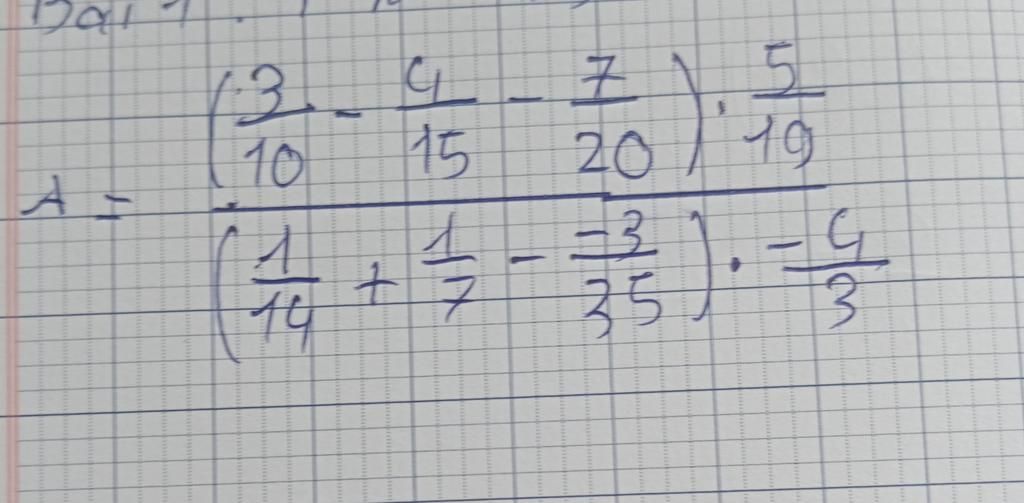 Bài 1:
A = \frac{\left(\frac{3}{10} - \frac{4}{15} - \frac{7}{20}\right) \cdot \frac{5}{19}}{\left(\frac{1}{14} + \frac{1}{7} - \frac{-3}{35}\right) \cdot \frac{-4}{3}}